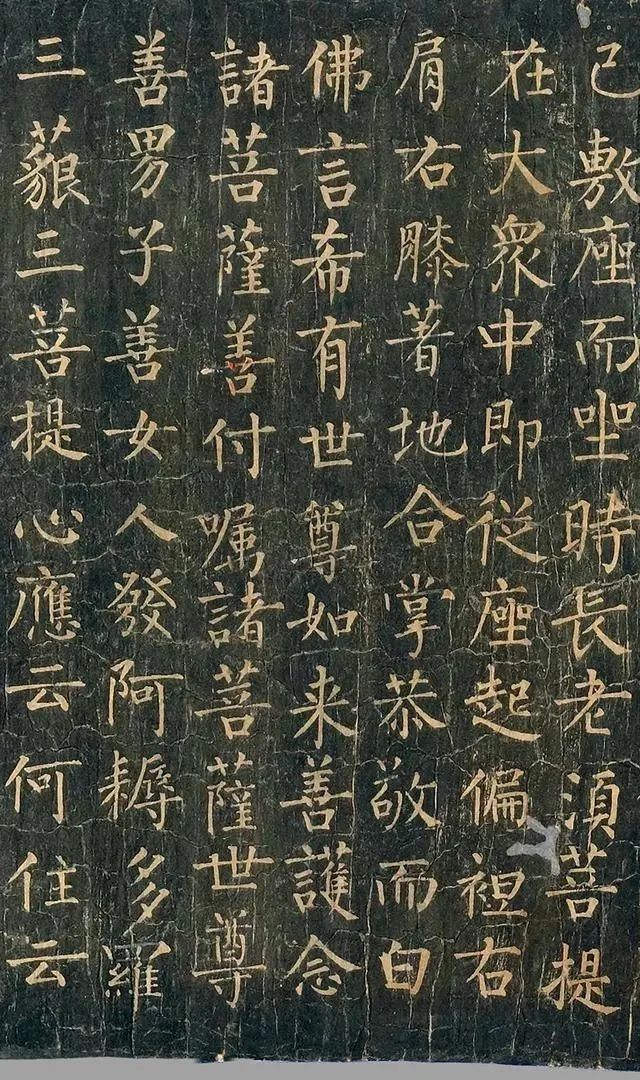 已敷座而坐時長老須菩提
在大衆中即從座起偏袒右
肩右膝著地合掌恭敬而白
佛言希有世尊如来善護念
諸菩薩善付嘱諸菩薩世尊
善男子善女人發阿耨多羅
三藐三菩提心應云何住云